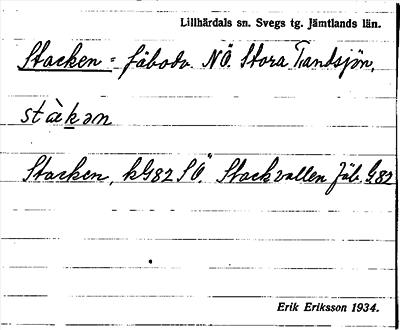 Lillhärdals sn. Svegs tg. Jämtlands län.
Stacken = fäbodv. NÖ. Stora Tandsjön,
stàkən
Stacken, kG82 SÖ. Stackvallen fäb. G82
Erik Eriksson 1934.